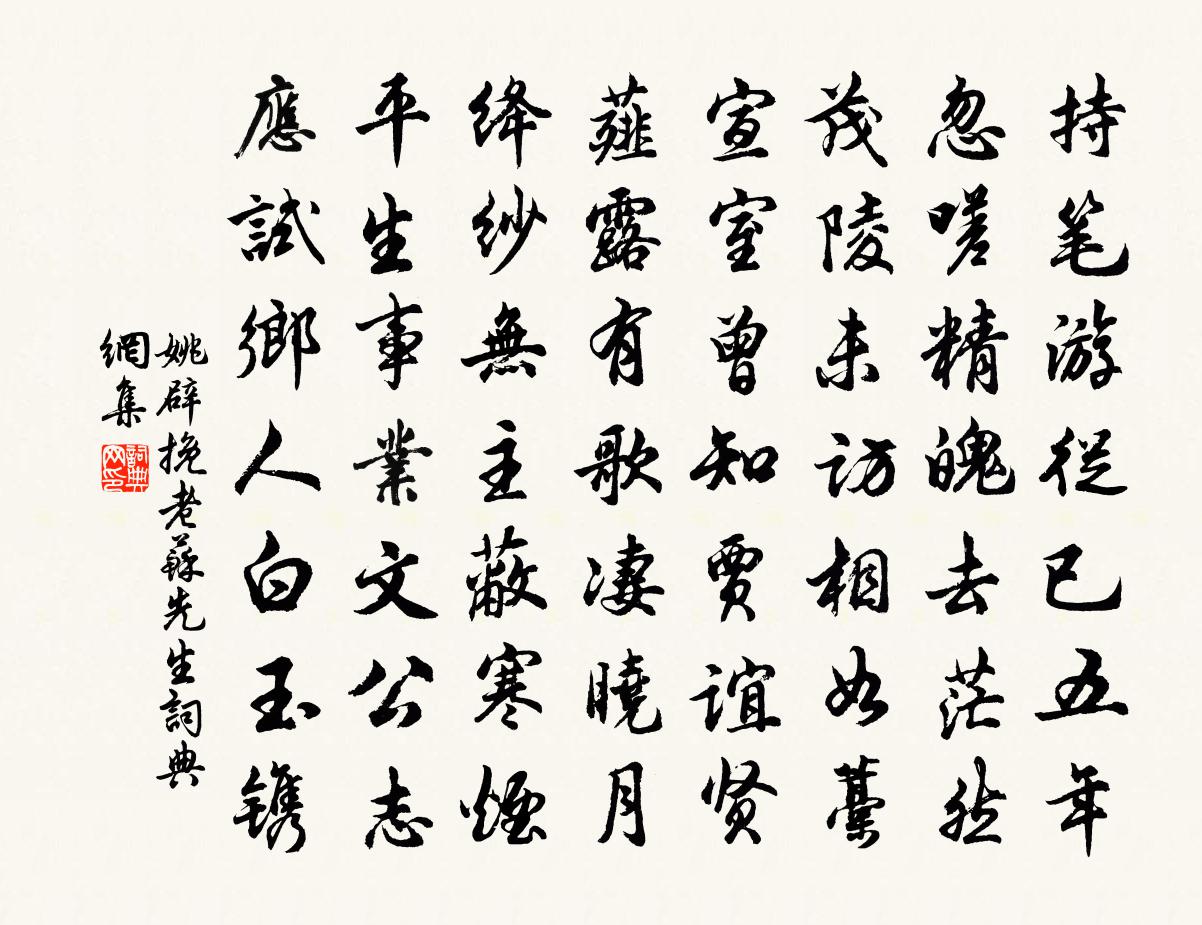 持笔游從已五年
忽嗟精魄去茫然
茂陵未访相如藁
宣室曾知贾谊贤
薤露有歌凄曉月
绛纱無主蔽寒煙
平生事業文公志
應試鄉人白玉镌
姚辟挽老蘇先生詞典
網集
詞典
网印